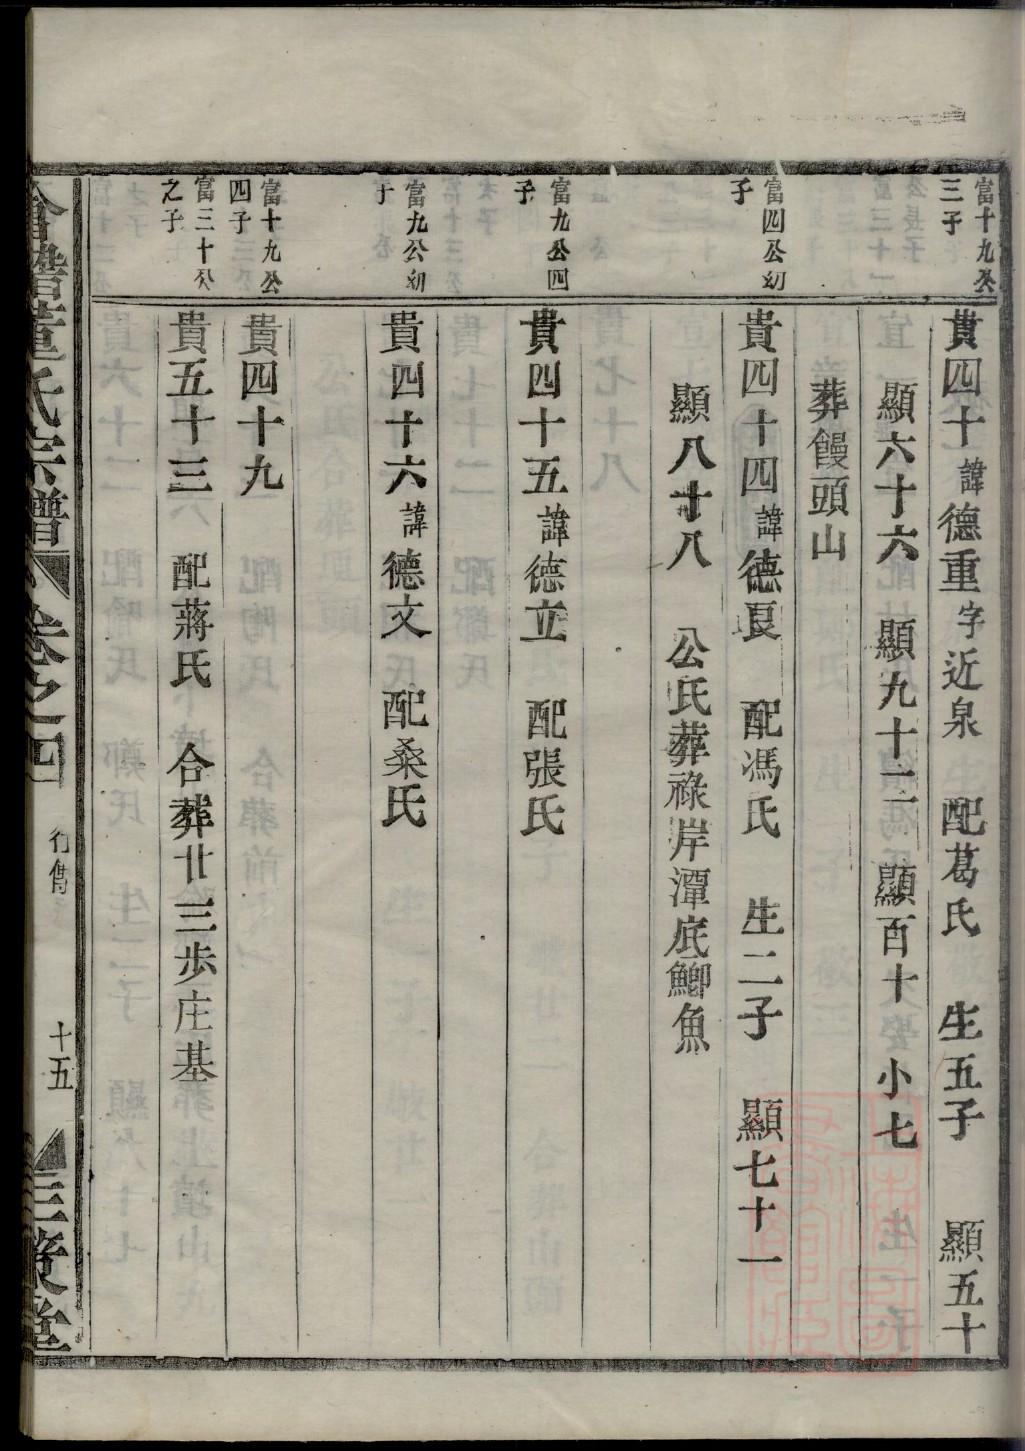 富十九公
三子
貴四十諱德重字近泉 配葛氏 生五子 顯五十
顯六十六 顯九十二 顯百十 小七
葬饅頭山
富四公幼
子
貴四十四諱德良 配馮氏 生二子 顯七十一
顯八十八 公氏葬祿岸潭底鯽魚
富九公四
子
貴四十五諱德立 配張氏
富九公幼
子
貴四十六諱德文 配桑氏
富十九公
四子
貴四十九
富三十公
之子
貴五十三 配蔣氏 合葬廿三步庄基
會稽董氏宗譜 卷之四 行傳 十五 三策堂